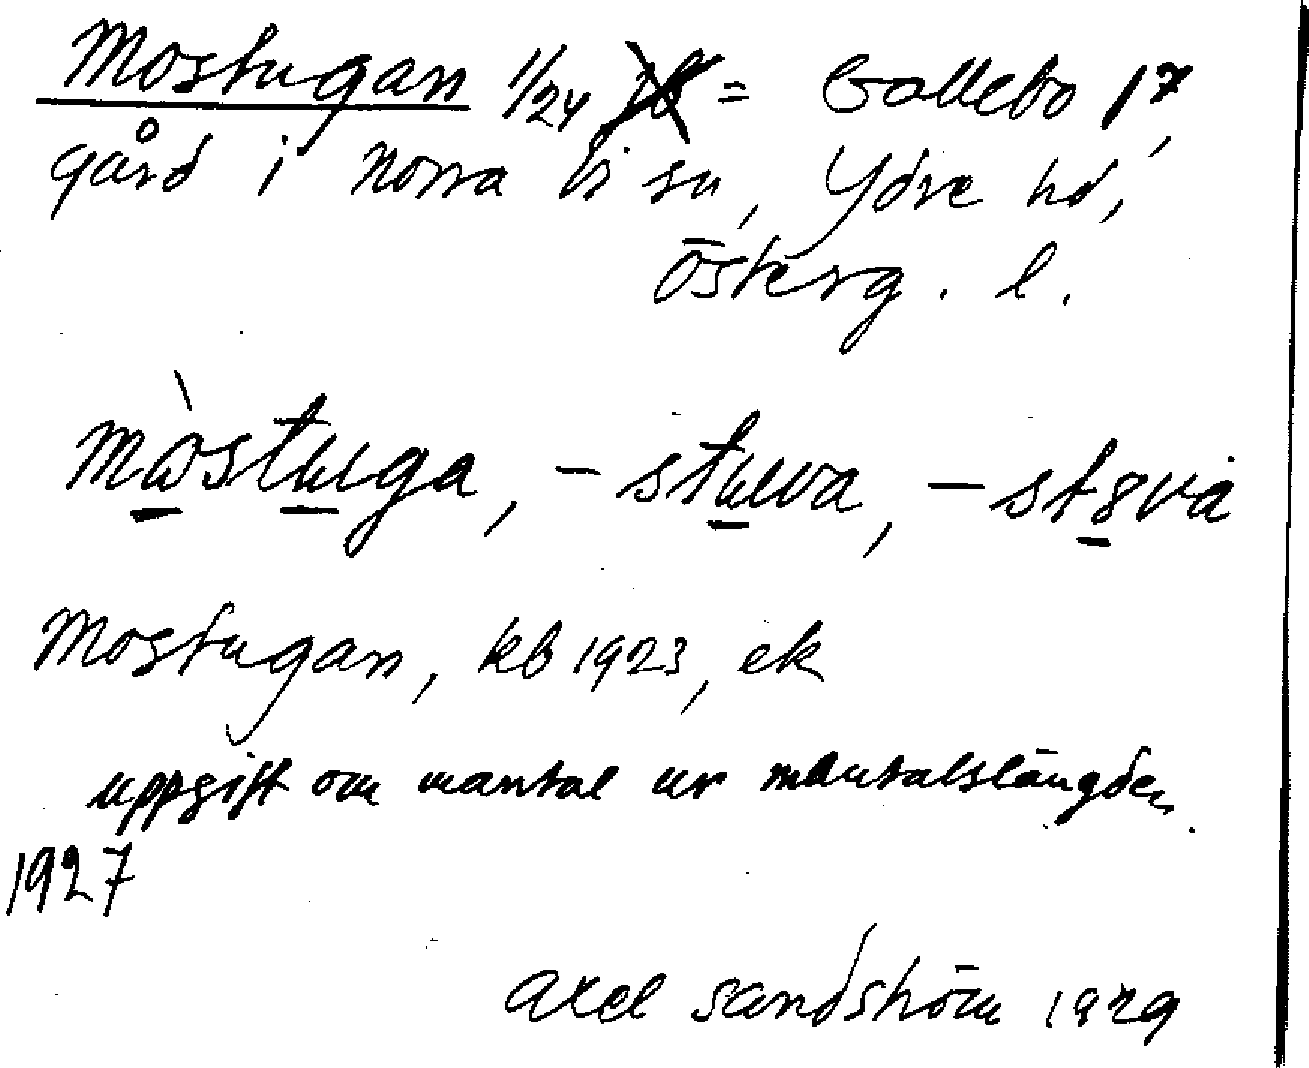 Mostugan 1/24 = Gallebo 1⁷,
gård i Norra Vi sn, Ydre hd,
Österg. l.
mòstuga, -stuva, -stova
Mostugan, kb 1923, ek
uppgift om mantal ur mantalslängden
1927
Axel Sandström 1929